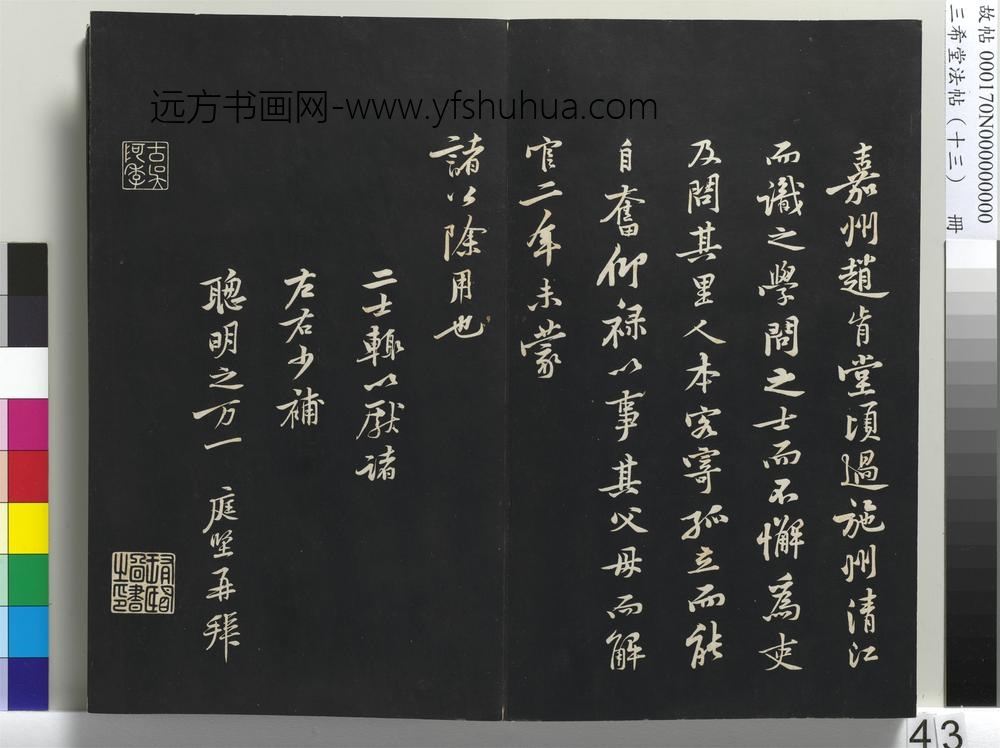 嘉州趙肯堂頃過施州清江
而識之學問之士而不懈為吏
及問其里人本客寄孤立而能
自奮仰禄以事其父母而解
官二年未蒙
諸公除用也
二士輒以厭諸
左右少補
聰明之万一 庭堅再拜
远方书画网-www.yfshuhua.com
故帖 000170N000000000
三希堂法帖（十三） 册
43